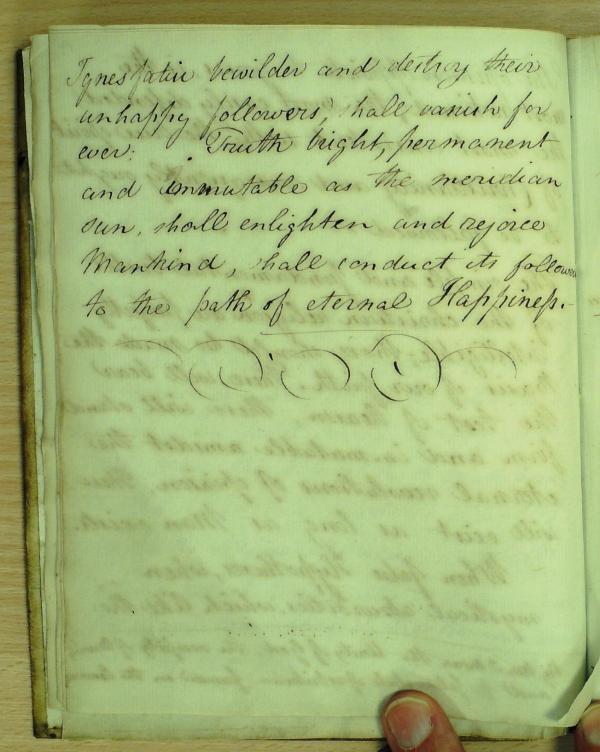 Ignes fatui bewilder and destroy their
unhappy followers, shall vanish for
ever: Truth bright, permanent
and immutable as the meridian
sun, shall enlighten and rejoice
Mankind, shall conduct its follow
to the path of eternal Happiness.